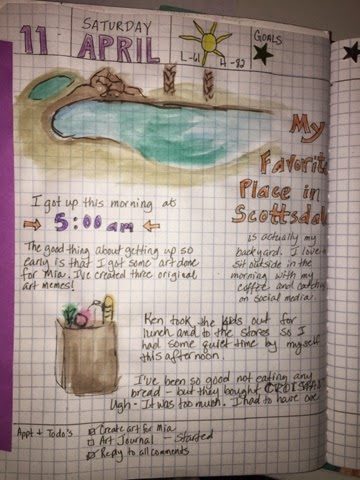 11
SATURDAY
APRIL
L-61
H-82
GOALS
My
Favorite
Place in
Scottsdale
is actually my
backyard. I love to
sit outside in the
morning with my
coffee and catch up
on social media.
I got up this morning at
5:00am
The good thing about getting up so
early is that I got some art done
for Mia. I've created three original
art memes!
Ken took the kids out for
lunch and to the stores so I
had some quiet time by myself
this afternoon.
I've been so good not eating any
bread - but they bought
Ugh - It was too much. I had to have one
Appt + Todo's
Create art for Mia
Art Journal - started
Reply to all comments